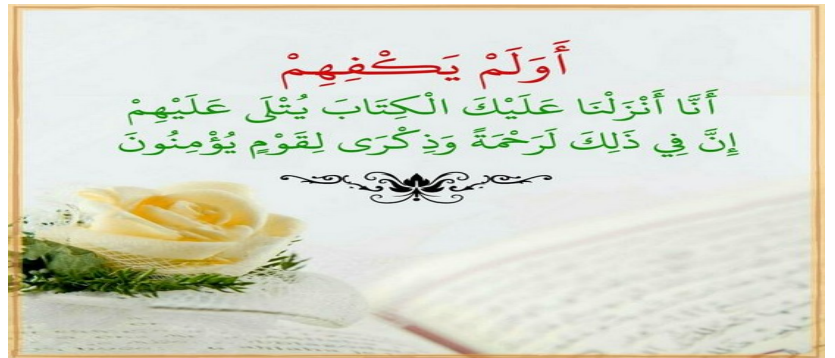 أَوَلَمْ يَكْفِهِمْ
أَنَّا أَنْزَلْنَا عَلَيْكَ الْكِتَابَ يُتْلَى عَلَيْهِمْ
إِنَّ فِي ذَلِكَ لَرَحْمَةً وَذِكْرَى لِقَوْمٍ يُؤْمِنُونَ